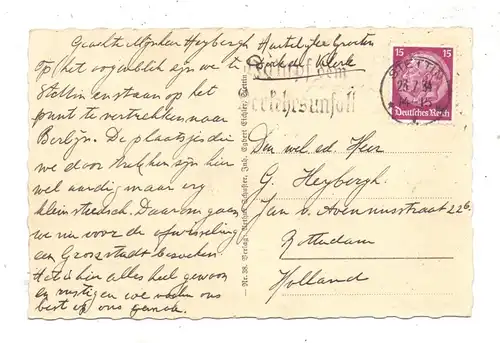 Geachte Mijnheer Heybergh
Op het oogenblik zijn we te
Stettin en staan op het
punt te vertrekken naar
Berlijn. De plaatsjes die
we door trekken zijn hier
wel aardig maar erg
kleinsteedsch. Daarom gaan
we nu voor de afwisseling
een Grossstadt bezoeken.
Het is hier alles heel gewoon
en rustig en we voelen ons
best op ons gemak.
Hartelijke Groeten
Kampf dem
Verkehrsunfall
STETTIN
15
15
Deutsches Reich
Nr. 28. Verlag Arthur Schuster, Inh. Egbert Eichler, Stettin
Den wel ed. Heer
G. Heybergh.
Jan v. Avennisstraat 226
Rotterdam
Holland